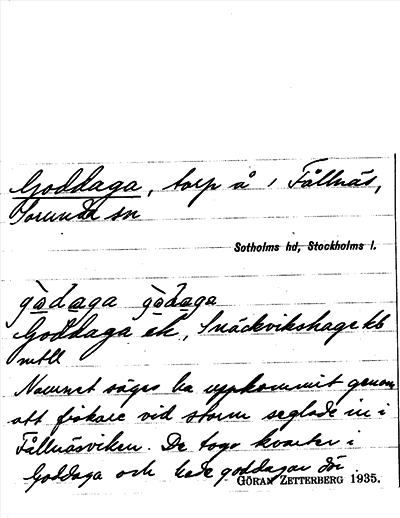 Goddaga, torp å 1 Fållnäs,
Sorunda sn
Sotholms hd, Stockholms l.
gòdaga gòdaga
Goddaga ek, Snäckvikshage kb
mtll
Namnet säges ha uppkommit genom
att fiskare vid storm seglade in i
Fållnäsviken. De togo kvarter i
Goddaga och hade goddagar där.
GÖRAN ZETTERBERG 1935.